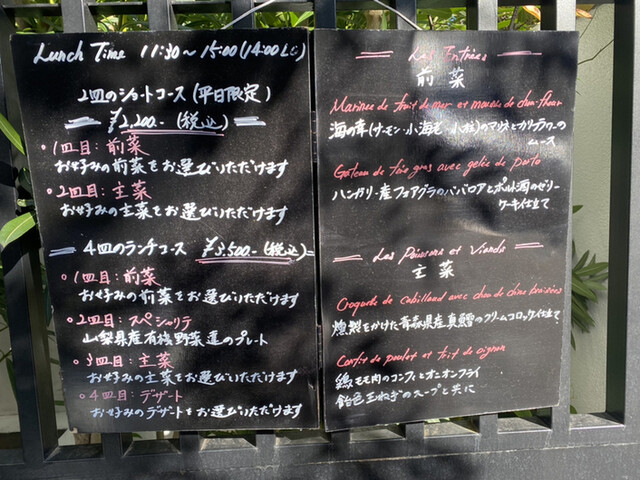 Lunch Time 11:30～15:00(14:00 LO)
2皿のショートコース(平日限定)
¥2,200-(税込)
1皿目：前菜
お好みの前菜をお選びいただけます
2皿目：主菜
お好みの主菜をお選びいただけます
4皿のランチコース ¥3,500-(税込)
1皿目：前菜
お好みの前菜をお選びいただけます
2皿目：スペシャリテ
山梨県産有機野菜達のプレート
3皿目：主菜
お好みの主菜をお選びいただけます
4皿目：デザート
お好みのデザートをお選びいただけます
Les Entrées
前菜
Marinee de fruit de mer et mousse de chou-fleur
海の幸(サーモン・小海老・小柱)のマリネとカリフラワーの
ムース
Gateau de foie gras avec gelée de porto
ハンガリー産フォアグラのババロアとポルト酒のゼリー
ケーキ仕立て
Les Poissons et Viande
主菜
Croquette de cabillaud avec chou de chine braisées
燻製をかけた青森県産真鱈のクリームコロッケ仕立て
Confit de poulet et frit de oignon
鶏モモ肉のコンフィとオニオンフライ
飴色玉ねぎのスープと共に